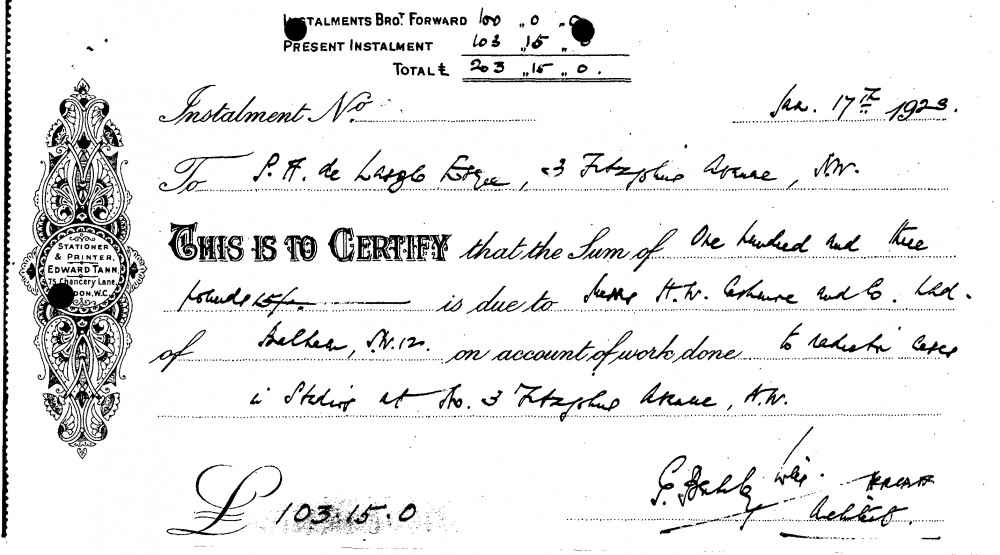 INSTALMENTS BROT. FORWARD 100 " 0 " 0
PRESENT INSTALMENT 103 " 15 " 0
TOTAL £ 203 " 15 " 0.
Instalment No.
Jan. 17th 1923.
To P. A. de Laszlo Esque, 3 Fitzjohns Avenue, N.W.
THIS IS TO CERTIFY that the Sum of One hundred and three
pounds 15/- is due to Messrs H.W. and Co. Ltd.
of Balham, S.W.12. on account of work done to radiator cases
in Studio at No. 3 Fitzjohns Avenue, N.W.
£ 103.15.0
Architect.
STATIONER
& PRINTER,
EDWARD TANN
75 Chancery Lane,
LONDON, W.C.